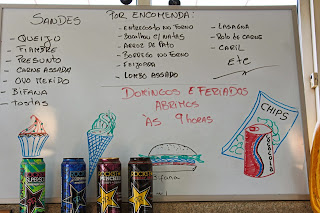 SANDES
- QUEIJO
- FIAMBRE
- PRESUNTO
- CARNE ASSADA
- OVO MEXIDO
- BIFANA
- TOSTAS
POR ENCOMENDA:
- ENTRECOSTO NO FORNO
- Bacalhau c/ natas
- ARROZ DE PATO
- BORREGO NO FORNO
- FEIJOADA
- LOMBO ASSADO
- LASAGNA
- Rolo de CARNE
- CARIL
ETC
DOMINGOS E FERIADOS
ABRIMOS
ÀS 9 HORAS
CHIPS
COCACOLA
Bifana
ROCKSTAR
ROCKSTAR